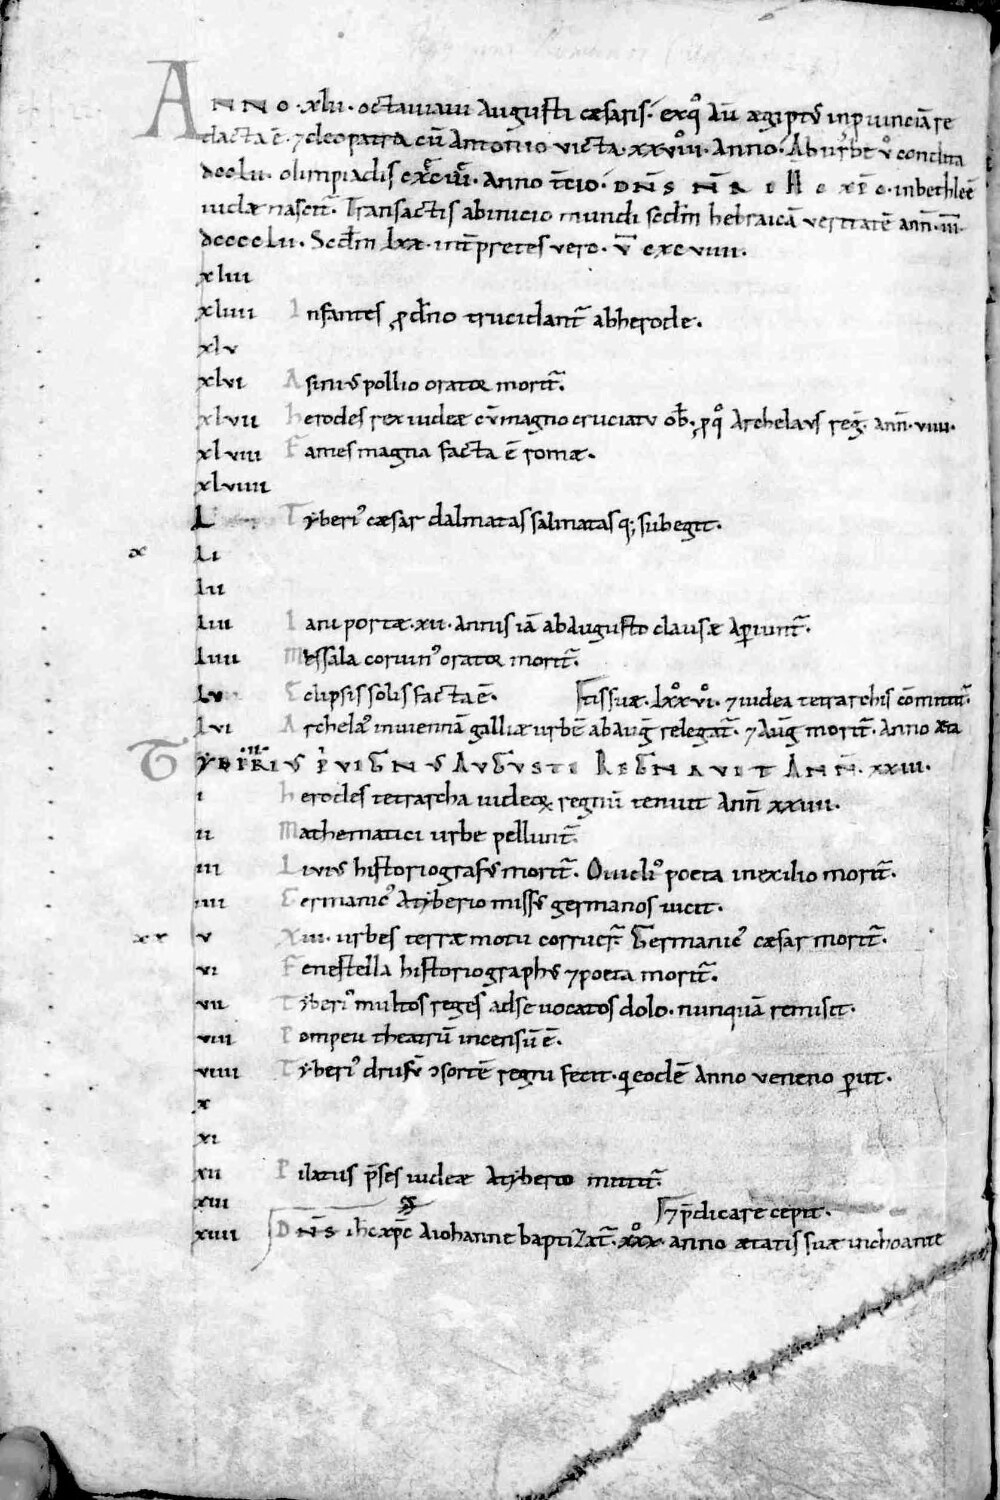 ANNO · xlii · octauiani Augusti cæsaris · exq° Aū ægiptꝰ inpuinciā re
dacta ē · ⁊ cleopatra cū Antonio victa · xxviii° · Anno · Ab urbe ů condita
dcclii · olimpiadis cxciii · Anno t̄cio · DN̄S N̄R IH̄C XP̄C · inbethleē
iudæ nascit̄ · Transactis abinicio mundi scdm̄ hebraicā veritatē ann̄ · iii ·
dcccclii · Scdm̄ lxx · int̄pretes vero · v̄ cxcviiii ·
xliii
xliiii Infantes ꝓdn̄o trucidant̄ abherode ·
xlv
xlvi Asiniꝰ pollio orator morit̄ ·
xlvii herodes rex iudeæ cū magno cruciatu ob̄ · ꝓq° Archelaus reg̅ · ann̄ · viiii ·
xlviii Fames magna facta ē romæ ·
xlviiii
L Tyberiꝰ cæsar dalmatas salmatasq; subegit ·
x Li
Lii
Liii Iani portæ · xii · annis iā abaugusto clausæ Aꝑiunt̄ ·
Liiii Messala coruinꝰ orator morit̄ ·
Lv Eclipsis solis facta ē · tis suæ · lxxvi° · ⁊ iudea tetrarchis cōmittit̄ ·
Lvi Archelaꝰ inuiennā galliæ urbē ab aug̅ relegat̄ · ⁊ Aug̅ morit̄ · Anno æta
TYBERIUS PRIUIGNUS AUGUSTI REGNAVIT ANN̄ · xxiii ·
i herodes tetrarcha iudeoꝝ regnū tenuit Ann̄ xxiiii ·
ii Mathematici urbe pellunt̄
iii Liuiꝰ historiografꝰ morit̄ · Ouidiꝰ poeta inexilio morit̄ ·
iiii Germanicꝰ Atyberio missꝰ germanos uicit ·
xx v Xiii · urbes terræ motu corruer̄ · Germanicꝰ cæsar morit̄ ·
vi Fenestella historiographꝰ ⁊ poeta morit̄ ·
vii Tyberiꝰ multos reges adse uocatos dolo · nunquā remisit ·
viii Pompeii theatrū incensū ē ·
viiii Tyberiꝰ drusū ↄsortē regni fecit · qi eodē Anno veneno ꝑiit ·
x
xi
xii Pilatus p̄ses iudeæ Atyberio mittit̄ ·
xiii ⁊ p̄dicare cepit ·
xiiii DN̄S ih̄c xp̄c Aiohanne baptizat̄ · xxx° · anno ætatis suæ inchoante